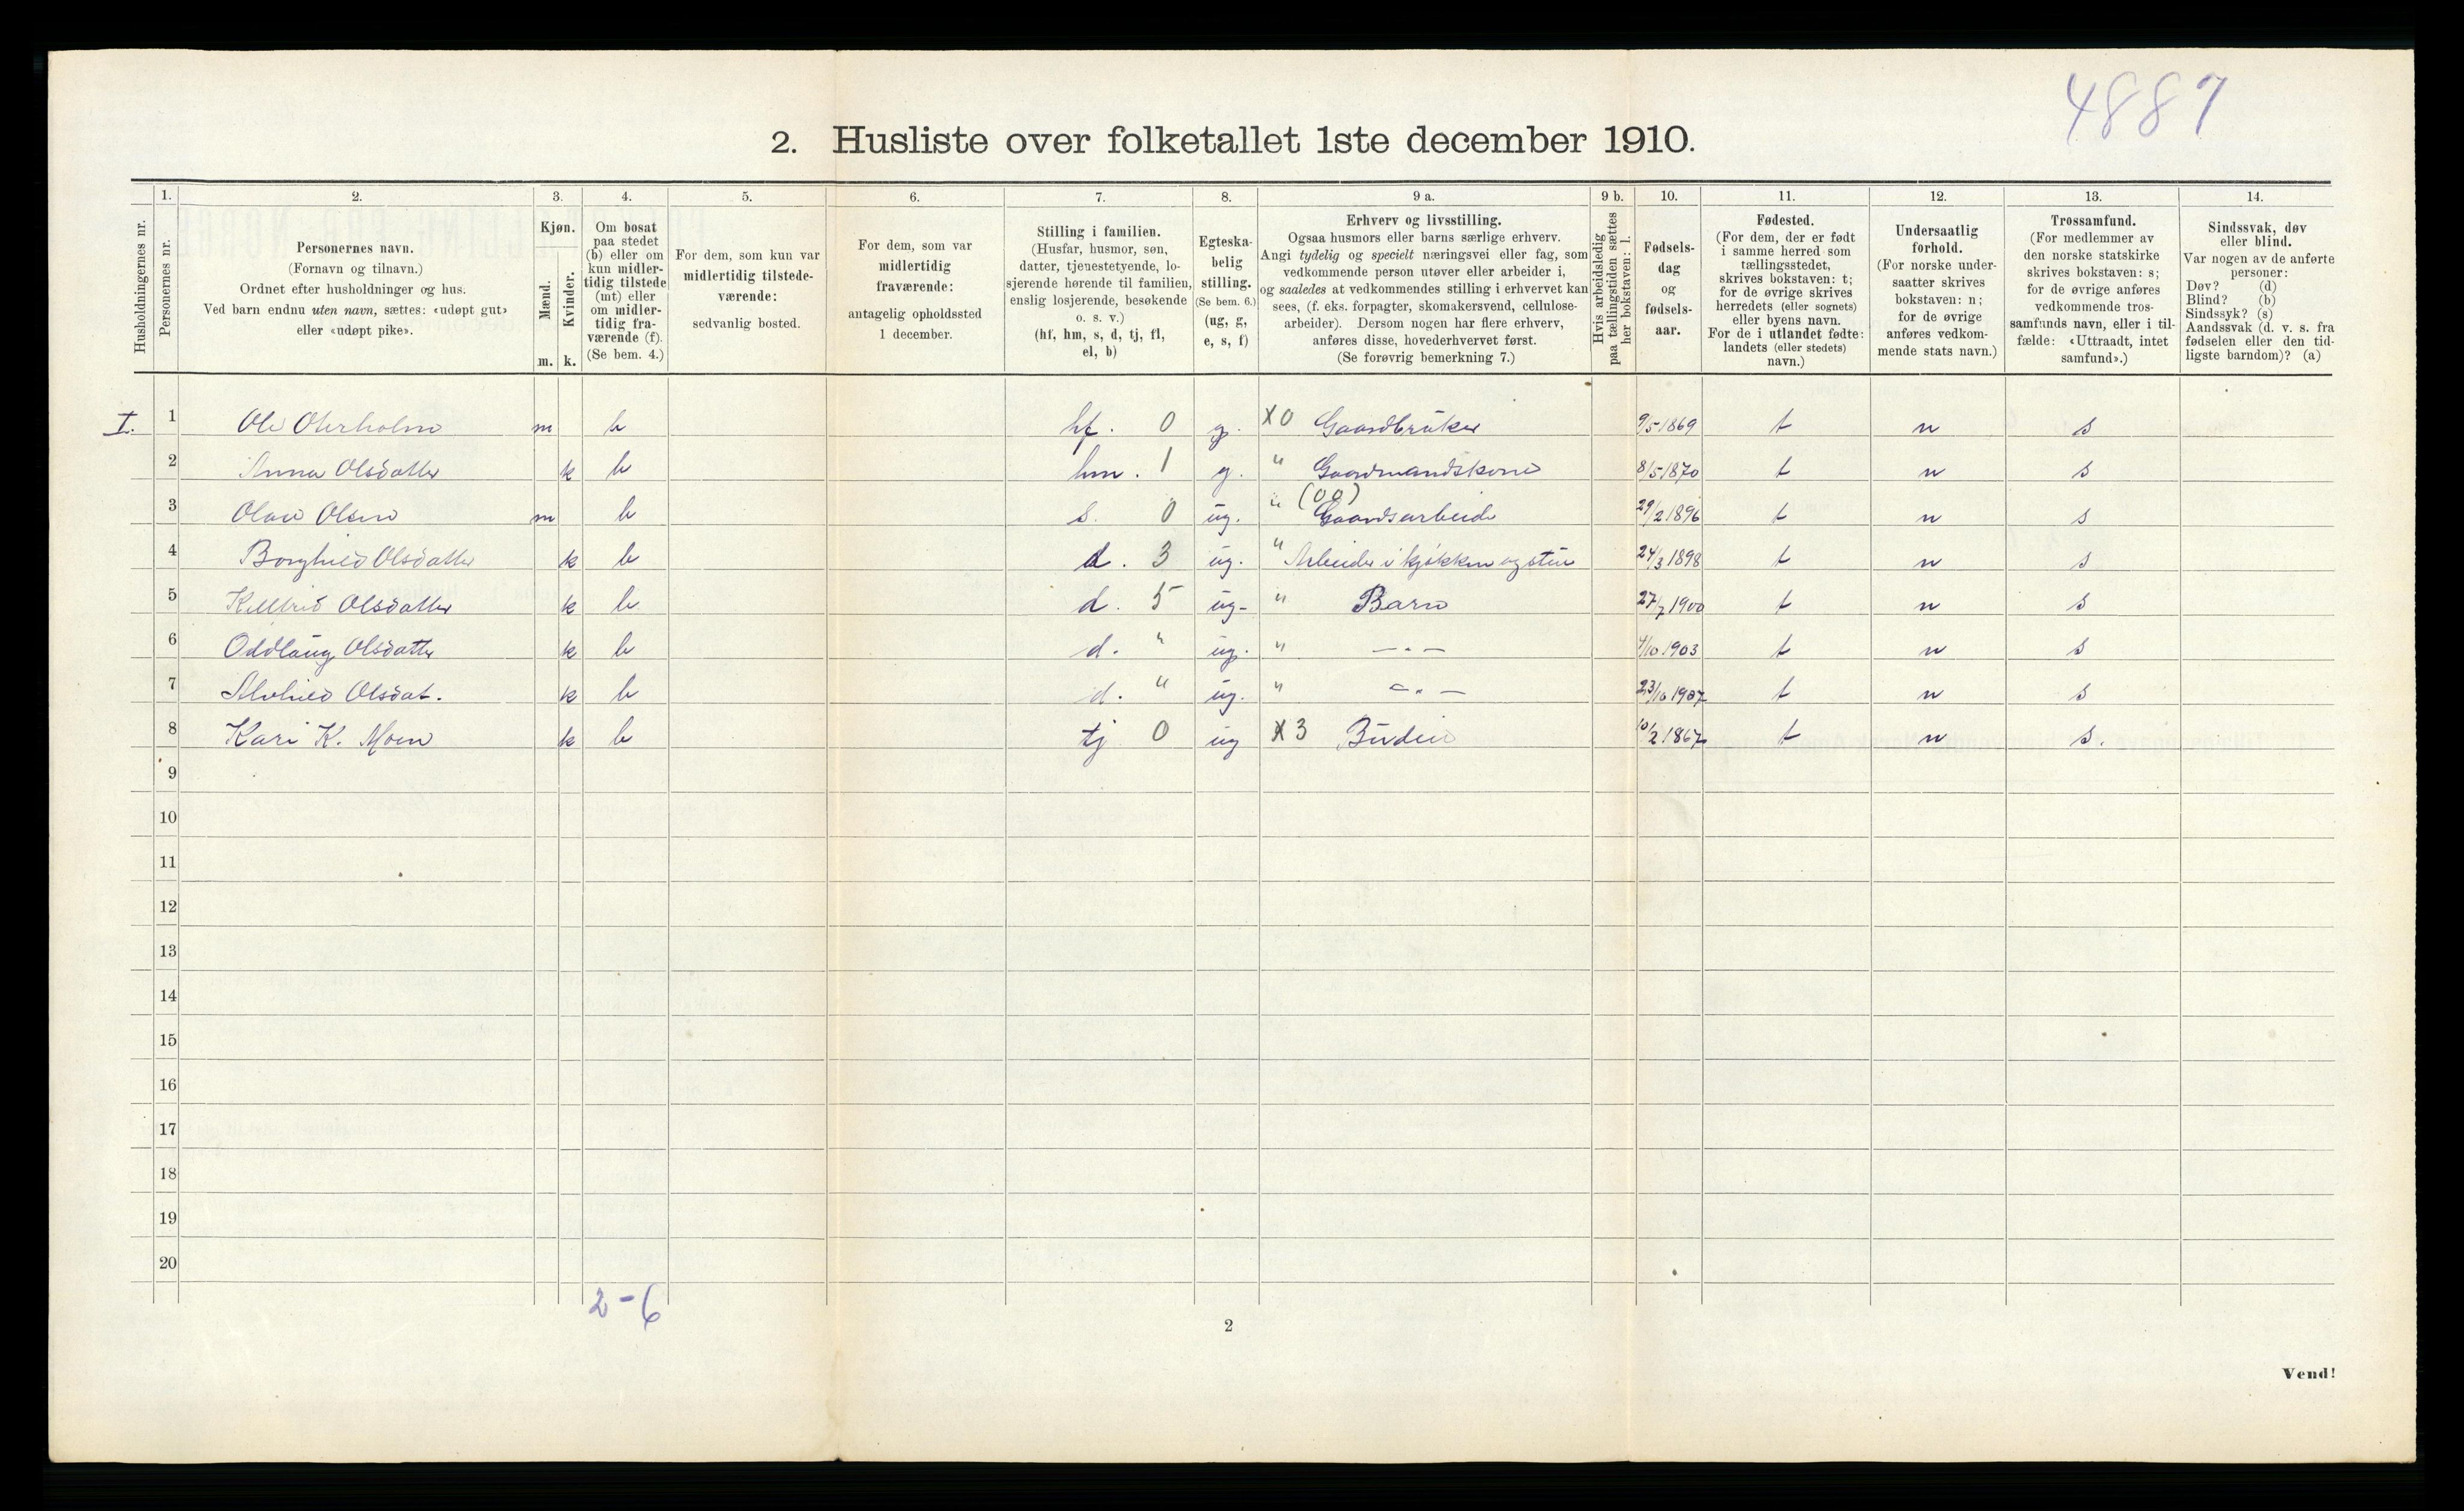 4887
2. Husliste over folketallet 1ste december 1910.
Husholdningernes nr.
1.
Personernes nr.
2.
Personernes navn.
(Fornavn og tilnavn.)
Ordnet efter husholdninger og hus.
Ved barn endnu uten navn, sættes: «udøpt gut»
eller «udøpt pike».
3.
Kjøn.
Mænd.
Kvinder.
m. k.
4.
Om bosat
paa stedet
(b) eller om
kun midler-
tidig tilstede
(mt) eller
om midler-
tidig fra-
værende (f).
(Se bem. 4.)
5.
For dem, som kun var
midlertidig tilstede-
værende:
sedvanlig bosted.
6.
For dem, som var
midlertidig
fraværende:
antagelig opholdssted
1 december.
7.
Stilling i familien.
(Husfar, husmor, søn,
datter, tjenestetyende, lo-
sjerende hørende til familien,
enslig losjerende, besøkende
o. s. v.)
(hf, hm, s, d, tj, fl,
el, b)
8.
Egteska-
belig
stilling.
(Se bem. 6.)
(ug, g,
e, s, f)
9 a.
Erhverv og livsstilling.
Ogsaa husmors eller barns særlige erhverv.
Angi tydelig og specielt næringsvei eller fag, som
vedkommende person utøver eller arbeider i,
og saaledes at vedkommendes stilling i erhvervet kan
sees, (f. eks. forpagter, skomakersvend, cellulose-
arbeider). Dersom nogen har flere erhverv,
anføres disse, hovederhvervet først.
(Se forøvrig bemerkning 7.)
9 b.
Hvis arbeidsledig
paa tællingstiden sættes
her bokstaven: l.
10.
Fødsels-
dag
og
fødsels-
aar.
11.
Fødested.
(For dem, der er født
i samme herred som
tællingsstedet,
skrives bokstaven: t;
for de øvrige skrives
herredets (eller sognets)
eller byens navn.
For de i utlandet fødte:
landets (eller stedets)
navn.)
12.
Undersaatlig
forhold.
(For norske under-
saatter skrives
bokstaven: n;
for de øvrige
anføres vedkom-
mende stats navn.)
13.
Trossamfund.
(For medlemmer av
den norske statskirke
skrives bokstaven: s;
for de øvrige anføres
vedkommende tros-
samfunds navn, eller i til-
fælde: «Uttraadt, intet
samfund».)
14.
Sindssvak, døv
eller blind.
Var nogen av de anførte
personer:
Døv? (d)
Blind? (b)
Sindssyk? (s)
Aandssvak (d. v. s. fra
fødselen eller den tid-
ligste barndom)? (a)
I. 1 Ole Oterholm m b hf. 0 g. X0 Gaardbruker 9/5 1869 t n s
2 Anna Olsdatter k b hm. 1 g. " Gaardmandskone 8/5 1870 t n s
3 Olav Olsen m b s. 0 ug. " (00) Gaardsarbeide 29/2 1896 t n s
4 Borghild Olsdatter k b d. 3 ug. " Arbeider i kjøkken og stue 24/3 1898 t n s
5 Olsdatter k b d. 5 ug. " Barn 27/7 1900 t n s
6 Oddlaug Olsdatter k b d. " ug. " — " — 4/10 1903 t n s
7 Alvhild Olsdat. k b d. " ug. " — " — 23/10 1907 t n s
8 Kari K. Moen k b tj 0 ug X3 Budeie 10/2 1867 t n s.
9
10
11
12
13
14
15
16
17
18
19
20
2-6
2
Vend!